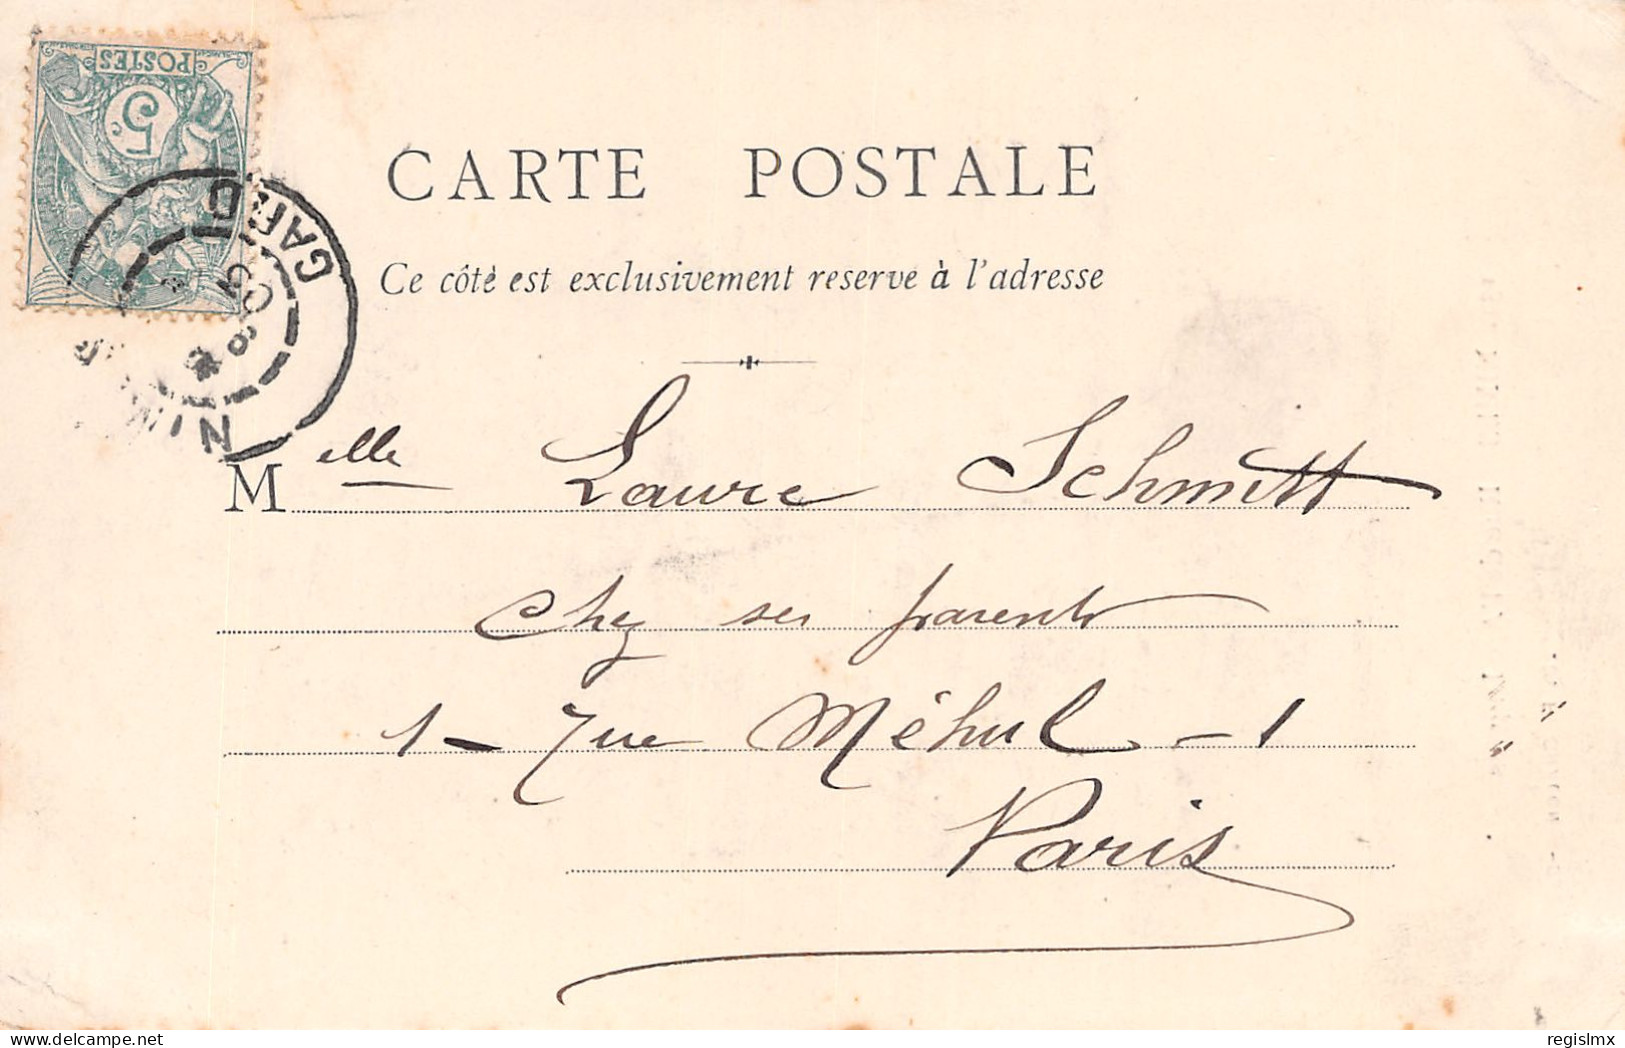 POSTES
5c
GARD
NIM
CARTE POSTALE
Ce côtè est exclusivement reserve à l'adresse
Melle Laure Schmitt
Chez ses parents
1 - rue Méhul - 1
Paris
delcampe.net
regislmx